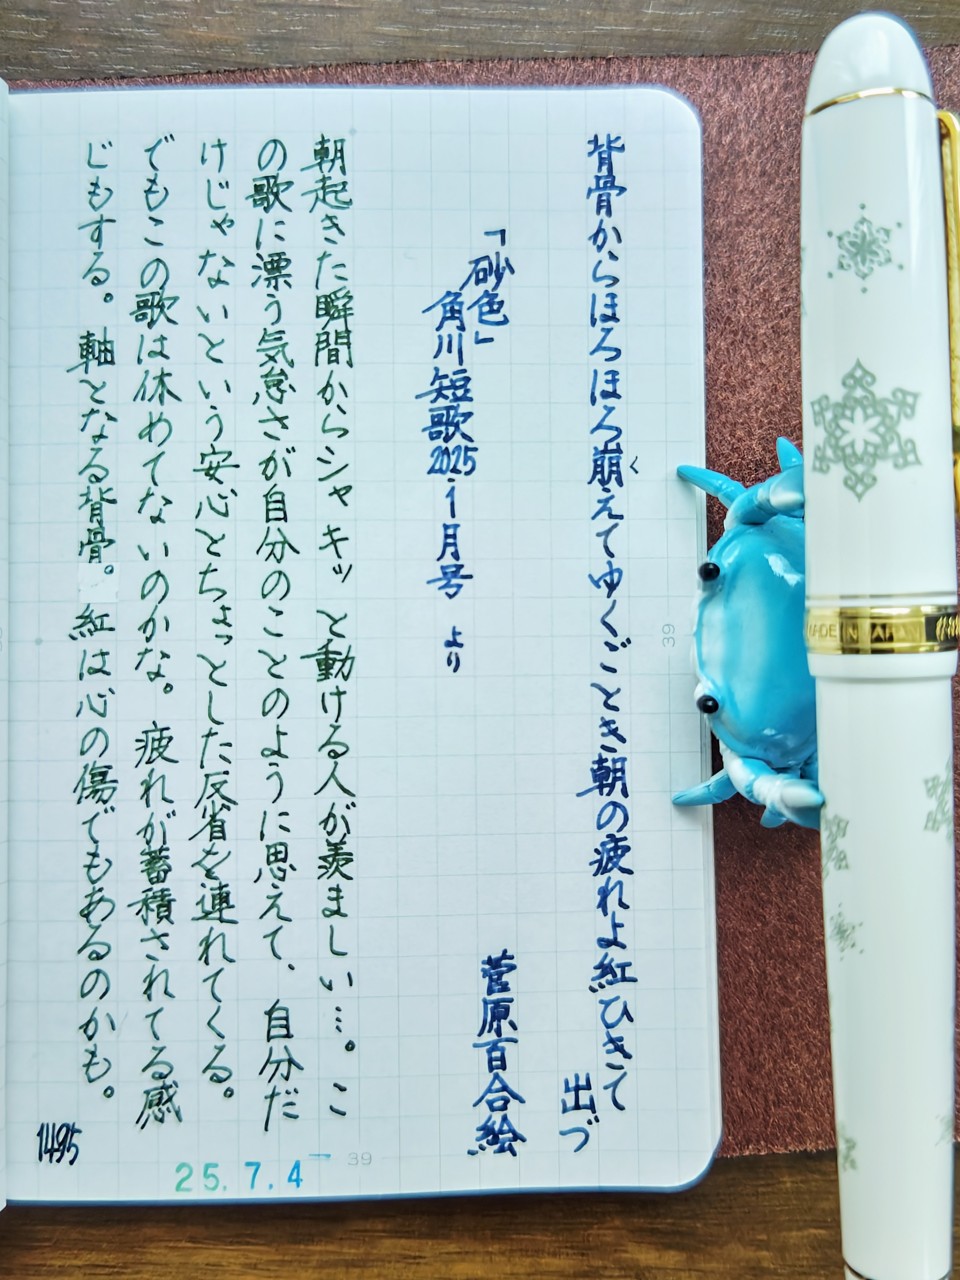 背骨からほろほろ崩えてゆくごとき朝の疲れよ紅ひきて
く
出づ
「砂色」
角川短歌2025.1月号 より
菅原百合絵
朝起きた瞬間からシャキッと動ける人が羨ましい…。こ
の歌に漂う気怠さが自分のことのように思えて、自分だ
けじゃないという安心とちょっとした反省を連れてくる。
でもこの歌は休めてないのかな。疲れが蓄積されてる感
じもする。軸となる背骨。紅は心の傷でもあるのかも。
1495
25.7.4
39
39
MADE IN JAPAN